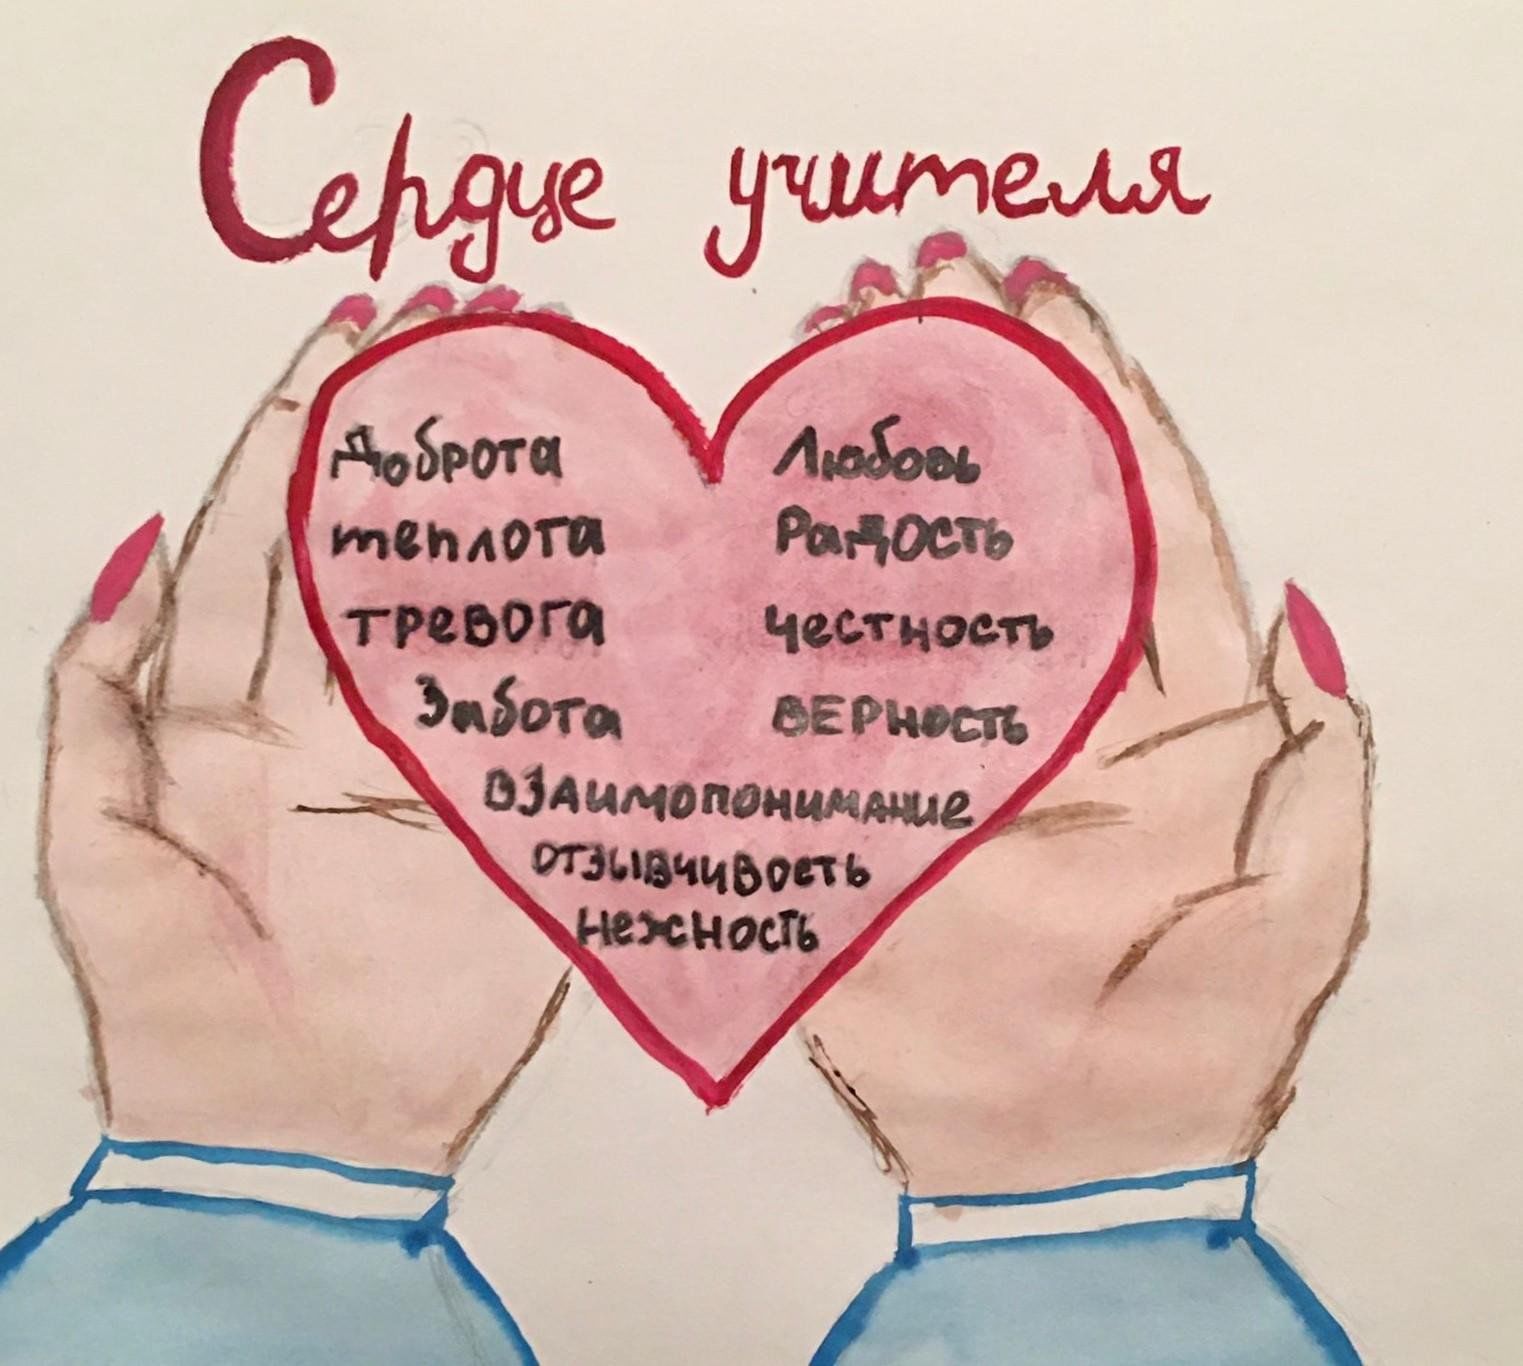 Сердце учителя
Доброта Любовь
теплота Радость
тревога честность
Забота ВЕРНость
взаимопонимание
отзывчивость
нежность